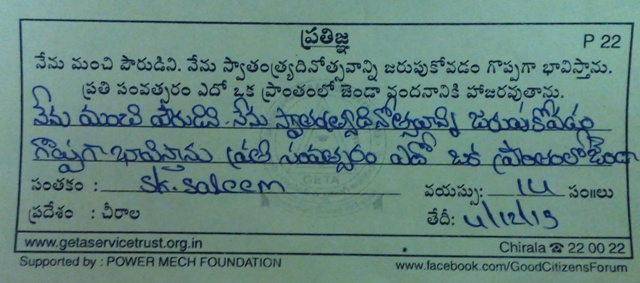 ప్రతిజ్ఞ
P 22
నేను మంచి పౌరుడిని. నేను స్వాతంత్ర్యదినోత్సవాన్ని జరుపుకోవడం గొప్పగా భావిస్తాను.
ప్రతి సంవత్సరం ఎదో ఒక ప్రాంతంలో జెండా వందనానికి హాజరవుతాను.
నేను మంచి పౌరుడిని. నేను స్వాతంత్ర్యదినోత్సవాన్ని జరుపుకోవడం
గొప్పగా భావిస్తాను ప్రతి సంవత్సరం ఎదో ఒక ప్రాంతంలో జెండా
సంతకం : sk.saleem వయస్సు: 14 సం॥లు
ప్రదేశం : చీరాల తేదీ: 4/12/15
www.getaservicetrust.org.in Chirala ☎ 22 00 22
Supported by : POWER MECH FOUNDATION www.facebook.com/GoodCitizensForum